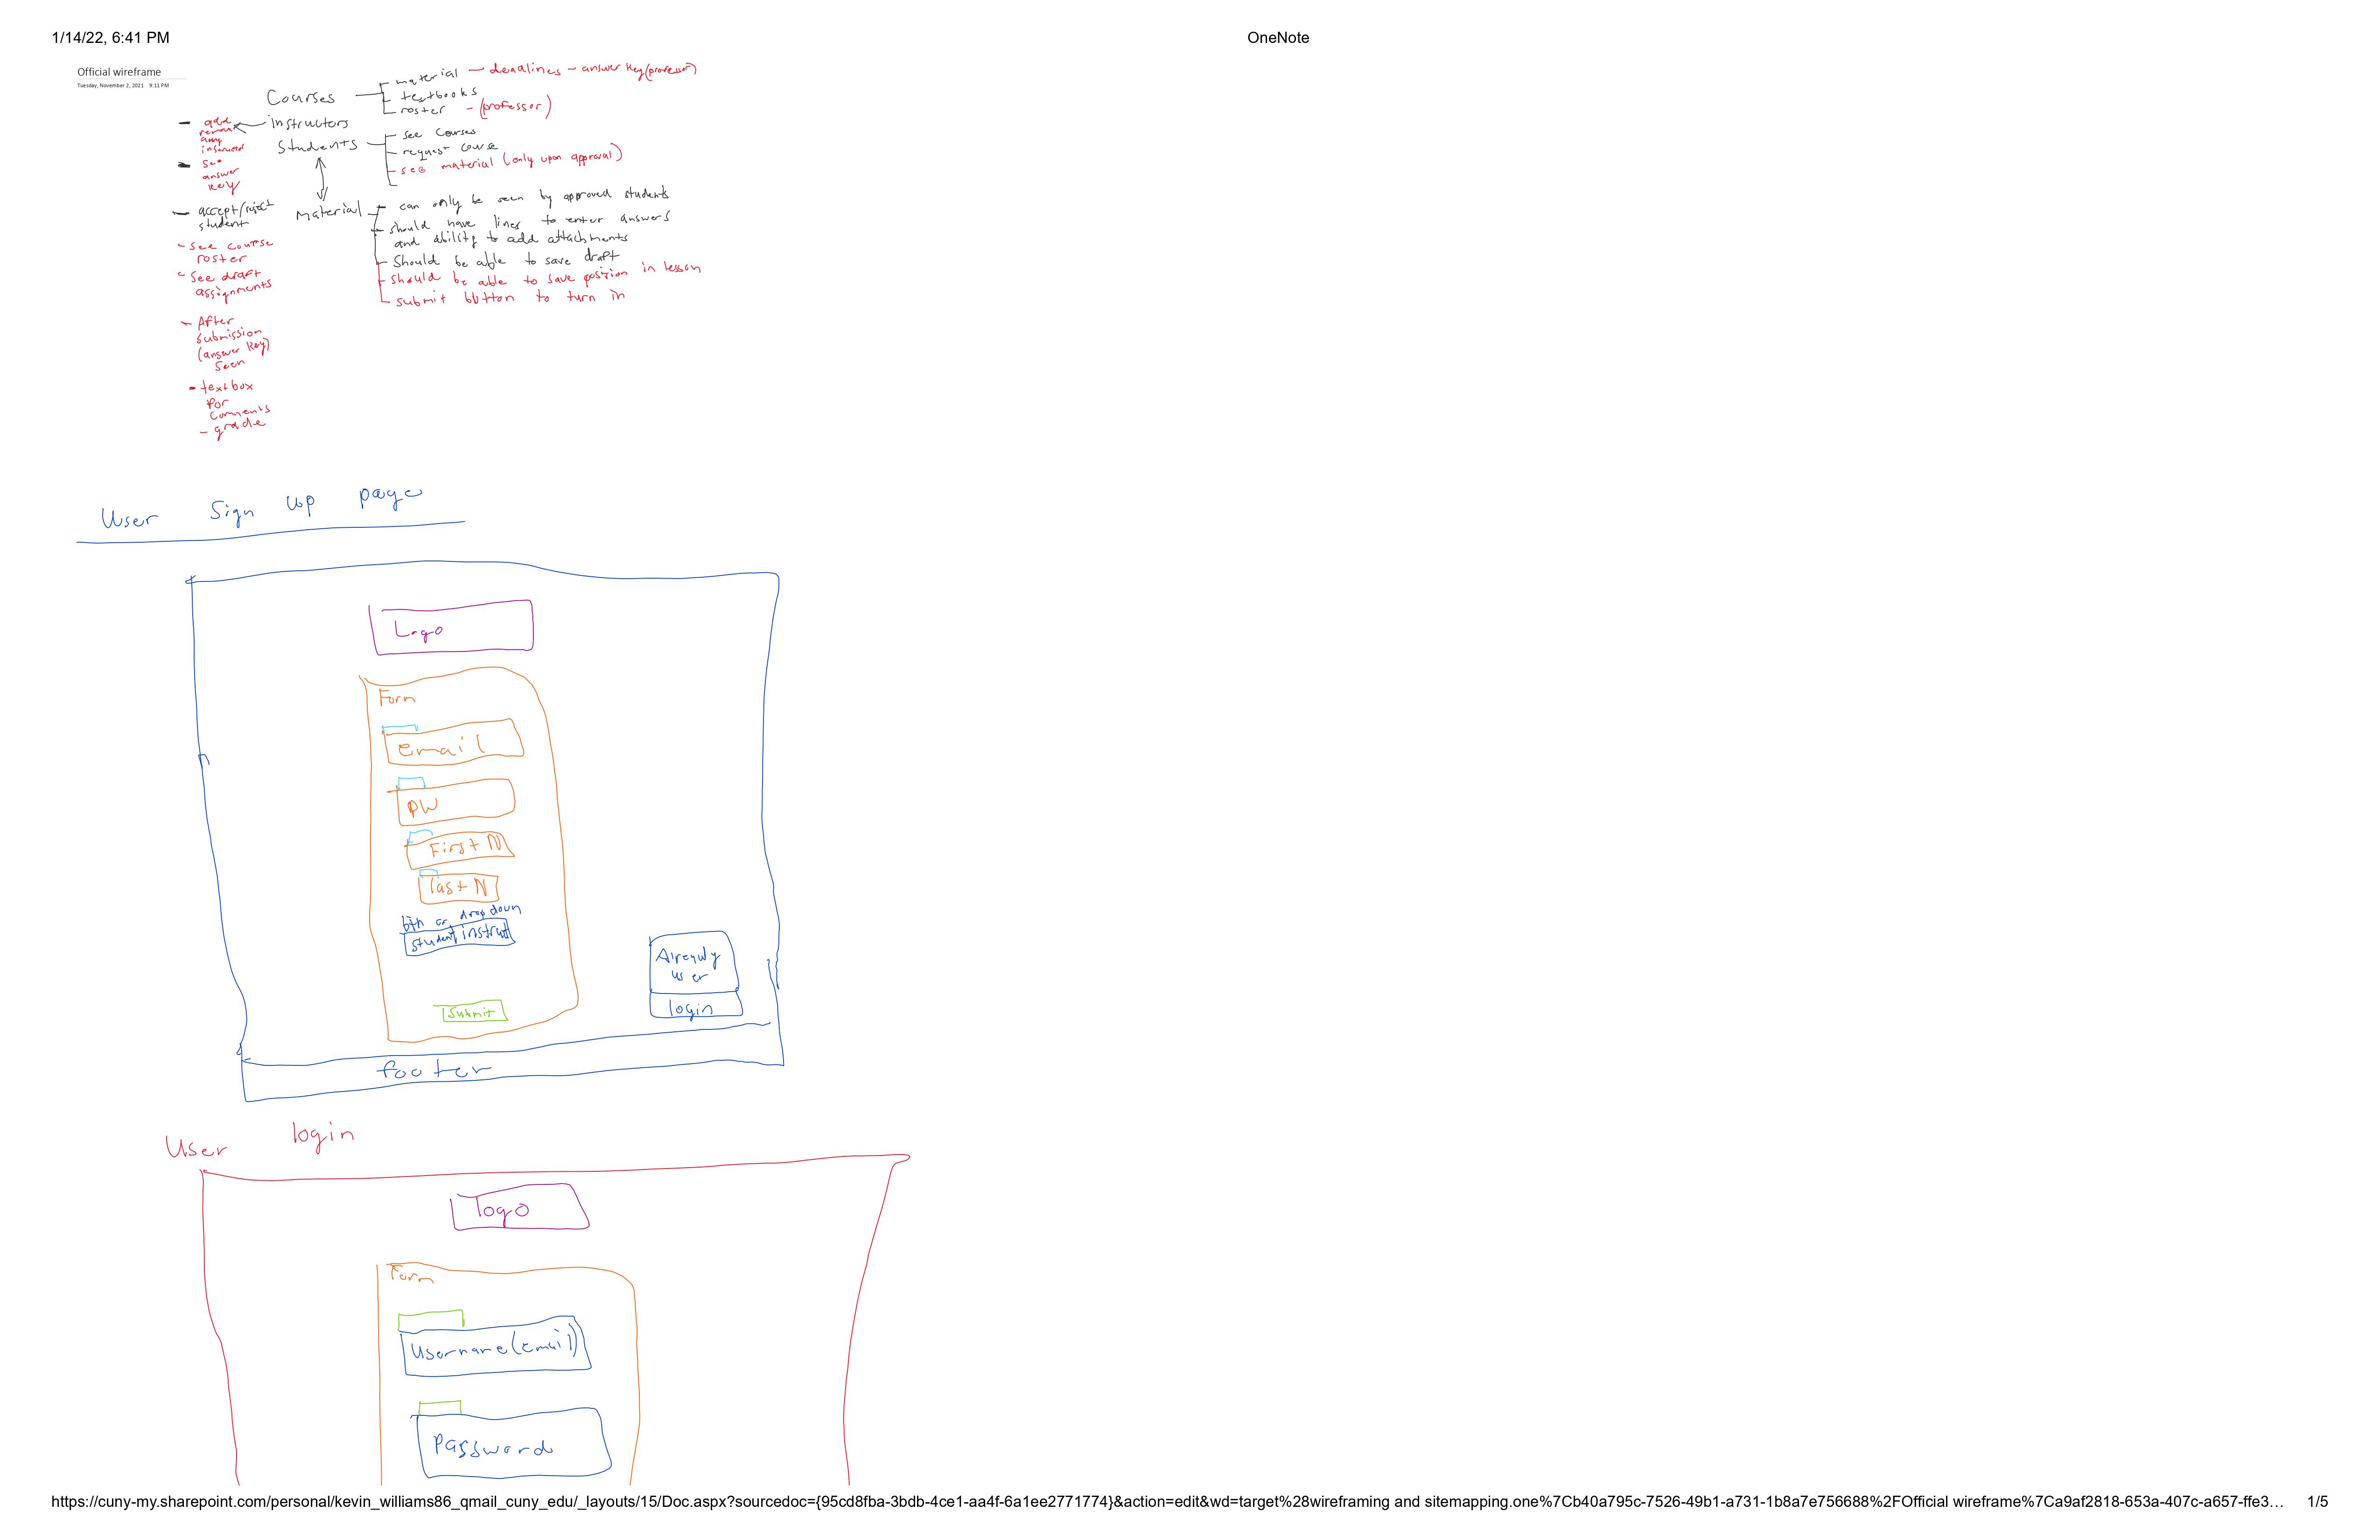 1/14/22, 6:41 PM
OneNote
Official wireframe
Tuesday, November 2, 2021 9:11 PM
Courses
material - deadlines - answer key (professor)
textbooks
roster - (professor)
instructors
- add
remove
any
instructor
- see
answer
key
- accept/reject
student
- see course
roster
- see draft
assignments
- After
submission
(answer key)
seen
- textbox
for
comments
- grade
Students
- see courses
- request course
- see material (only upon approval)
Material
- can only be seen by approved students
- should have lines to enter answers
and ability to add attachments
- Should be able to save draft
- should be able to save position in lesson
- submit button to turn in
User Sign up page
Logo
Form
email
PW
First N
last N
btn or dropdown
student instruct
Submit
Already
user
login
footer
User login
logo
Form
Username (email)
Password
https://cuny-my.sharepoint.com/personal/kevin_williams86_qmail_cuny_edu/_layouts/15/Doc.aspx?sourcedoc={95cd8fba-3bdb-4ce1-aa4f-6a1ee2771774}&action=edit&wd=target%28wireframing and sitemapping.one%7Cb40a795c-7526-49b1-a731-1b8a7e756688%2FOfficial wireframe%7Ca9af2818-653a-407c-a657-ffe3…
1/5